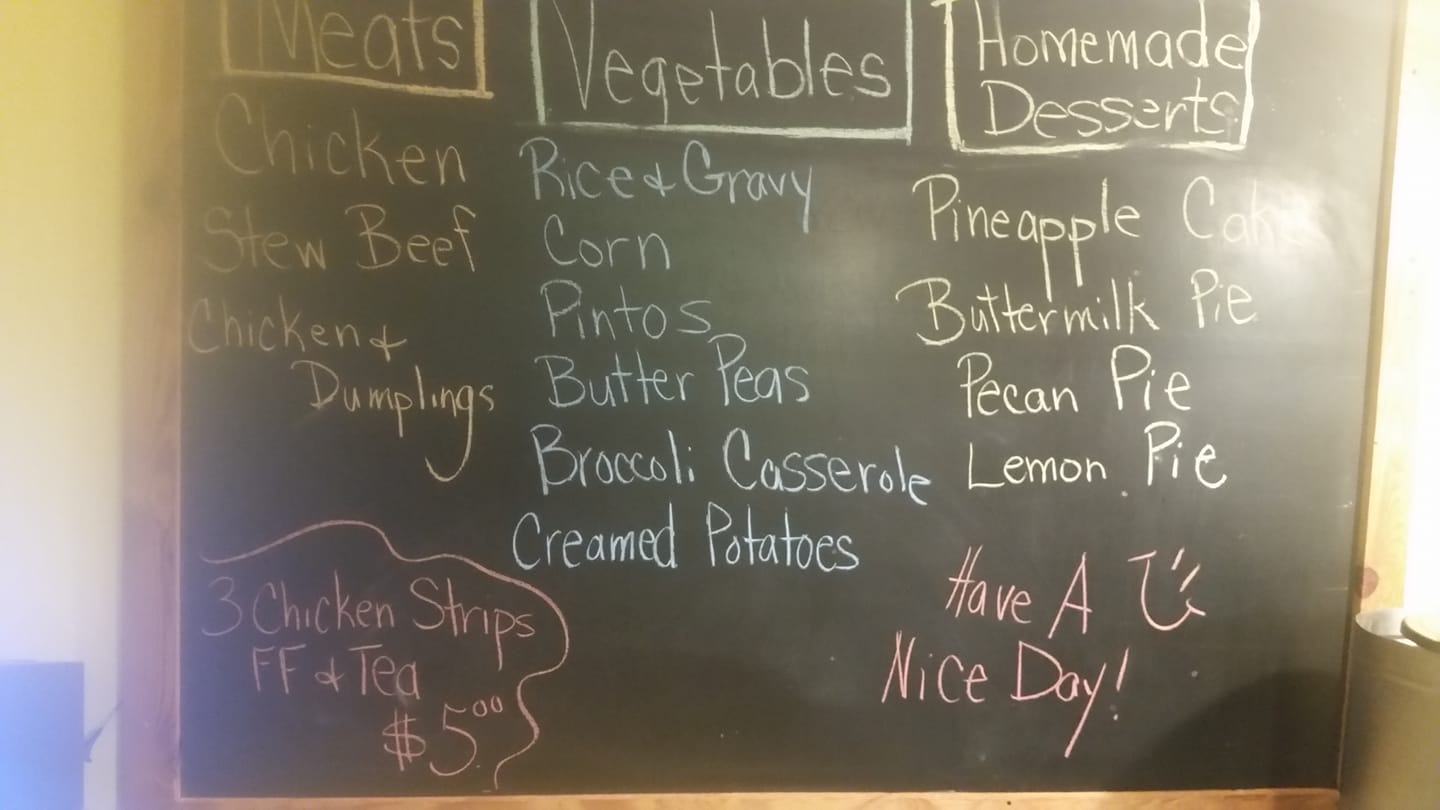 Meats
Chicken
Stew Beef
Chicken &
Dumplings
3 Chicken Strips
FF & Tea
$5.00
Vegetables
Rice & Gravy
Corn
Pintos
Butter Peas
Broccoli Casserole
Creamed Potatoes
Homemade
Desserts
Pineapple Cake
Buttermilk Pie
Pecan Pie
Lemon Pie
Have A
Nice Day!